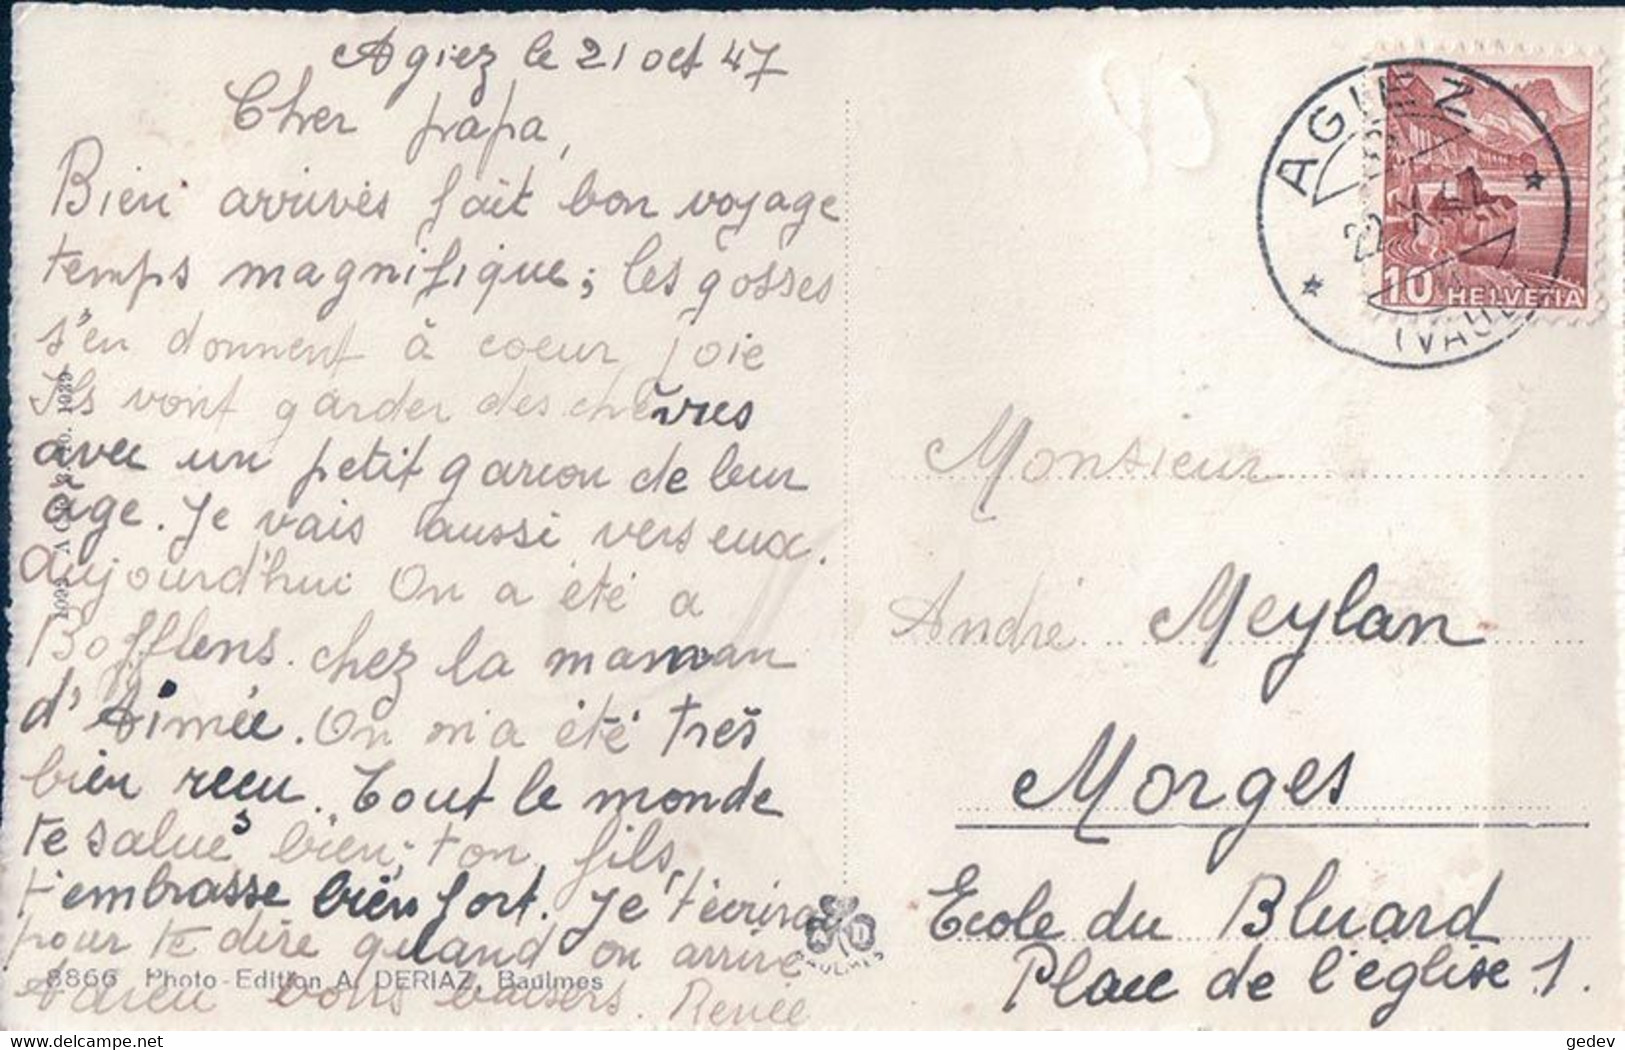 Agiez le 21 oct 47
Cher papa,
Bien arrivés fait bon voyage
temps magnifique; les gosses
s'en donnent à coeur joie
Ils vont garder des chèvres
avec un petit garcon de leur
âge. Je vais aussi vers eux.
aujourd'hui On a été a
Bofflens chez la maman
d'Aimée. On m'a été très
bien recu. Tout le monde
te salue bien; ton fils,
t'embrasse bien fort. Je t'écrirai
pour te dire quand on arrive
Adieu bons baisers. Renée
8866 Photo-Edition A. DERIAZ, Baulmes
A D
BAULMES
AGIEZ
(VAUD)
10 HELVETIA
Monsieur
André Meylan
Morges
Ecole du Bluard
Place de l'église 1.
www.delcampe.net
gedev